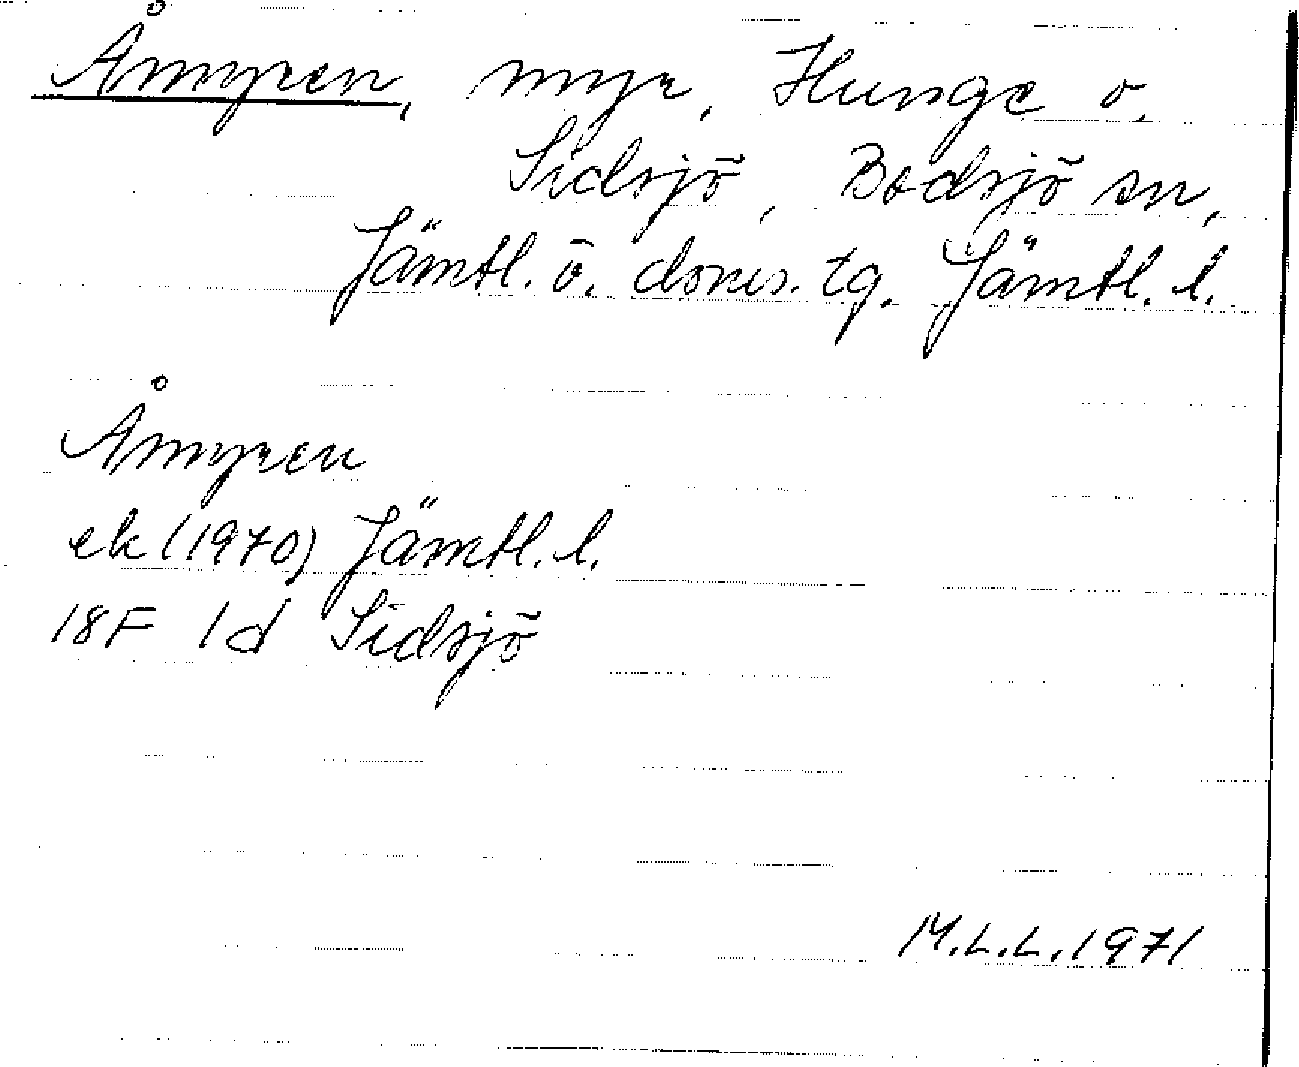 Åmyren, myr, Hunge o.
Sidsjö, Bodsjö sn,
Jämtl. ö. doms. tg. Jämtl. l.
Åmyren
ek (1970) Jämtl. l.
18F 1d Sidsjö
M.L.L. 1971